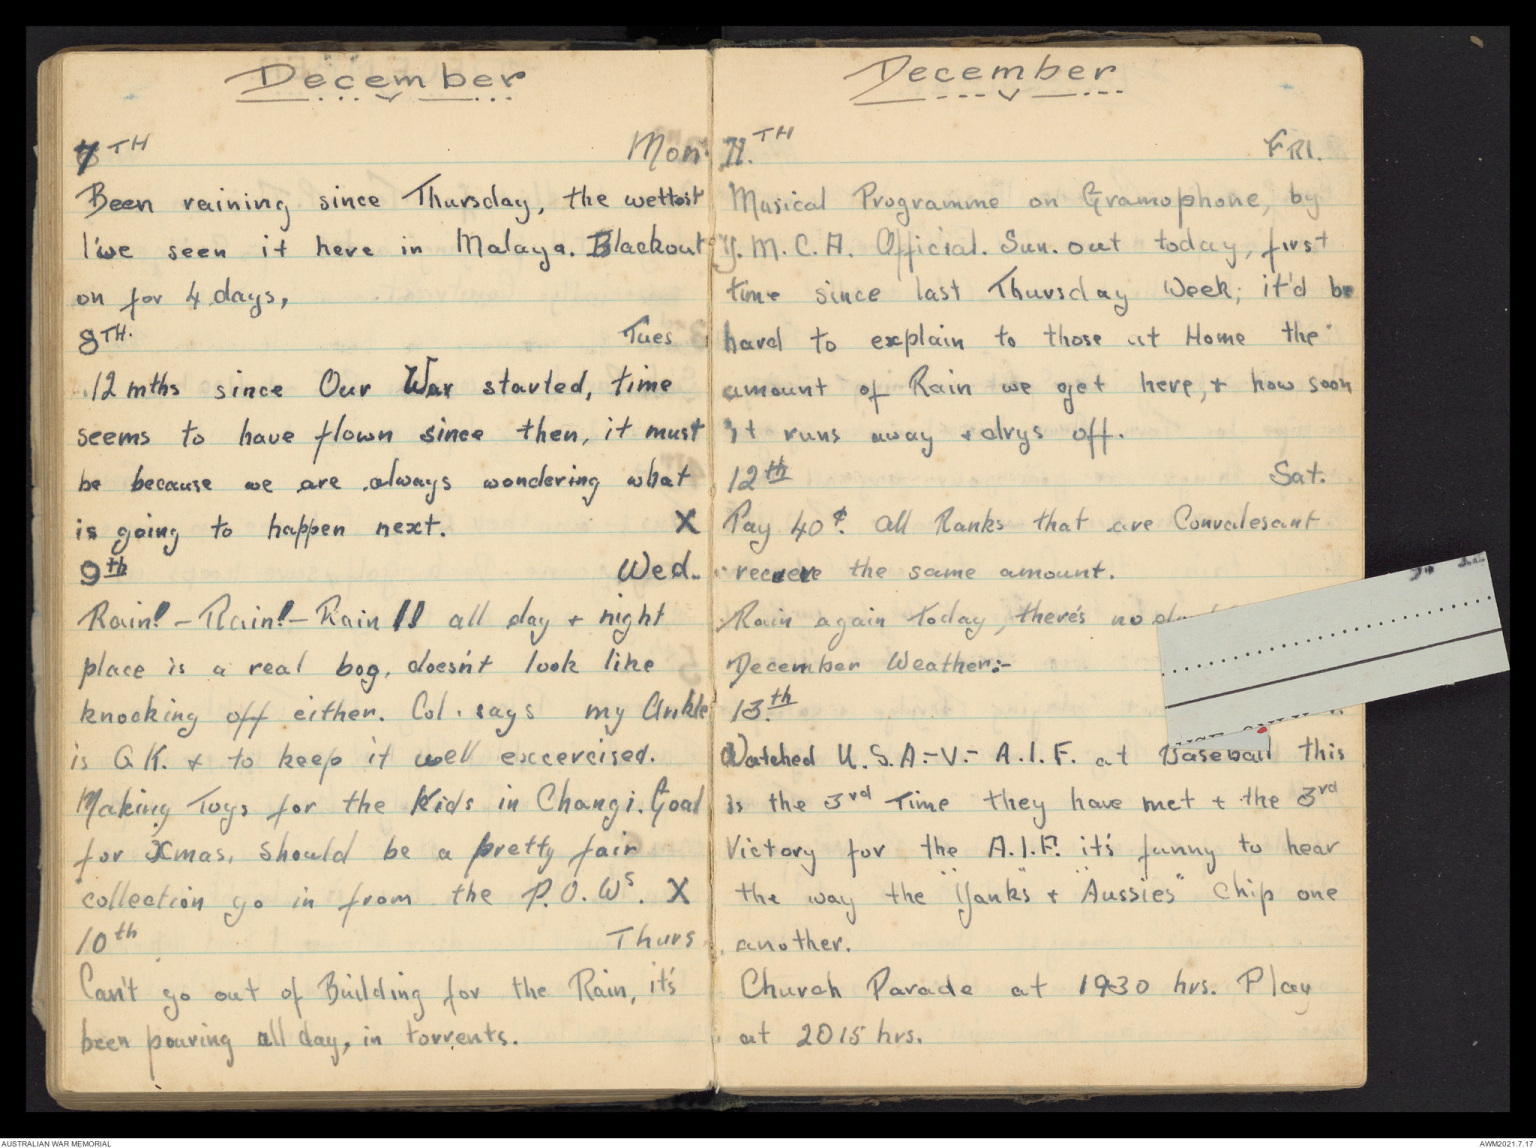 December
7TH Mon.
Been raining since Thursday, the wettest
I've seen it here in Malaya. Blackout
on for 4 days,
8TH. Tues
12 mths since Our War started, time
seems to have flown since then, it must
be because we are always wondering what
is going to happen next. X
9th Wed.
Rain! – Rain! – Rain !! all day + night
place is a real bog, doesn't look like
knocking off either. Col. says my Ankle
is O.K. + to keep it well excercised.
Making Toys for the Kids in Changi. Goal
for Xmas, should be a pretty fair
collection go in from the P.O.Ws. X
10th Thurs
Can't go out of Building for the Rain, it's
been pouring all day, in torrents.
December
11.TH FRI.
Musical Programme on Gramophone, by
Y.M.C.A. Official. Sun. out today, first
time since last Thursday Week; it'd be
hard to explain to those at Home the
amount of Rain we get here, + how soon
it runs away + drys off.
12th Sat.
Pay 40¢. all Ranks that are Convalesant
recieve the same amount.
Rain again today, there's no
December Weather:-
13.th
Watched U.S.A.-V.- A.I.F. at Baseball this
is the 3rd Time they have met + the 3rd
Victory for the A.I.F. it's funny to hear
the way the "Yanks" + "Aussies" Chip one
another.
Church Parade at 1930 hrs. Play
at 2015 hrs.
AUSTRALIAN WAR MEMORIAL AWM2021.7.17